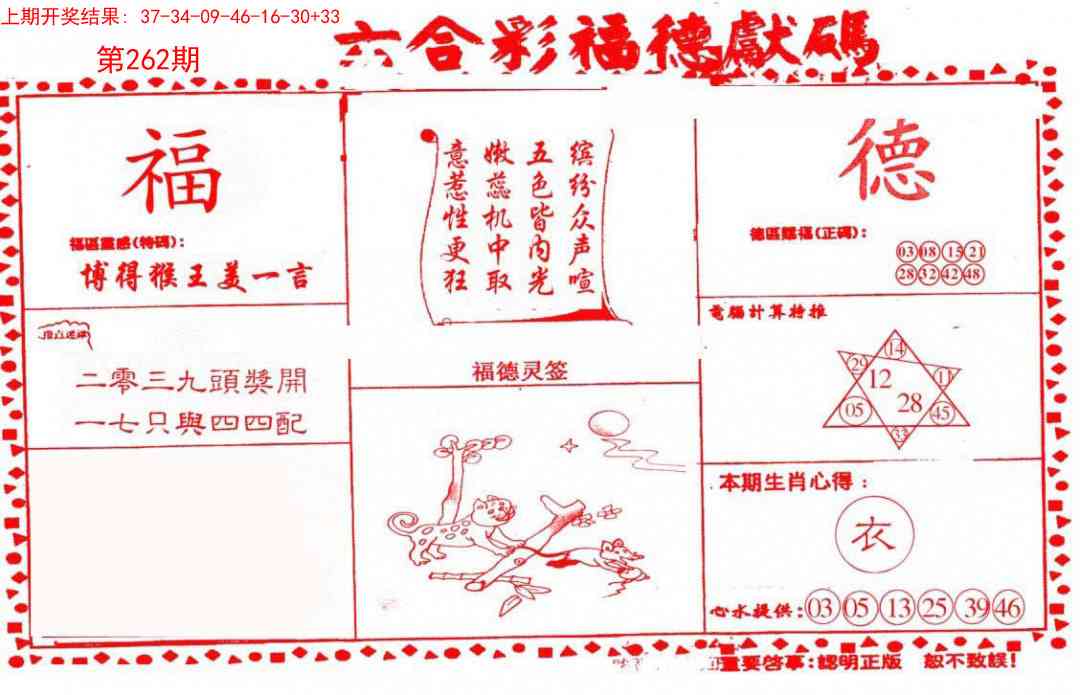 上期开奖结果：37-34-09-46-16-30+33
第262期
六合彩福德獻碼
福
福區靈感(特碼)：
博得猴王美一言
二零三九頭獎開
一七只與四四配
缤纷众声喧
五色皆内光
嫩蕊机中取
意惹性更狂
福德灵签
德
德區賜福(正碼)：
03 08 15 21
28 32 42 48
電腦計算特推
14
29
11
12
28
05
45
33
本期生肖心得：
衣
心水提供：03 05 13 25 39 46
重要啓事：認明正版 恕不致誤！